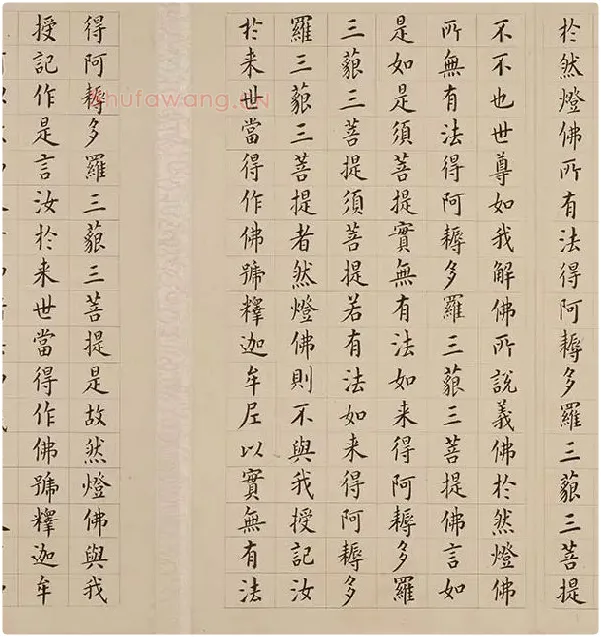 於然燈佛所有法得阿耨多羅三藐三菩提
不不也世尊如我解佛所說義佛於然燈佛
所無有法得阿耨多羅三藐三菩提佛言如
是如是須菩提實無有法如来得阿耨多羅
三藐三菩提須菩提若有法如来得阿耨多
羅三藐三菩提者然燈佛則不與我授記汝
於来世當得作佛號釋迦牟尼以實無有法
得阿耨多羅三藐三菩提是故然燈佛與我
授記作是言汝於来世當得作佛號釋迦牟
shufawang.CN